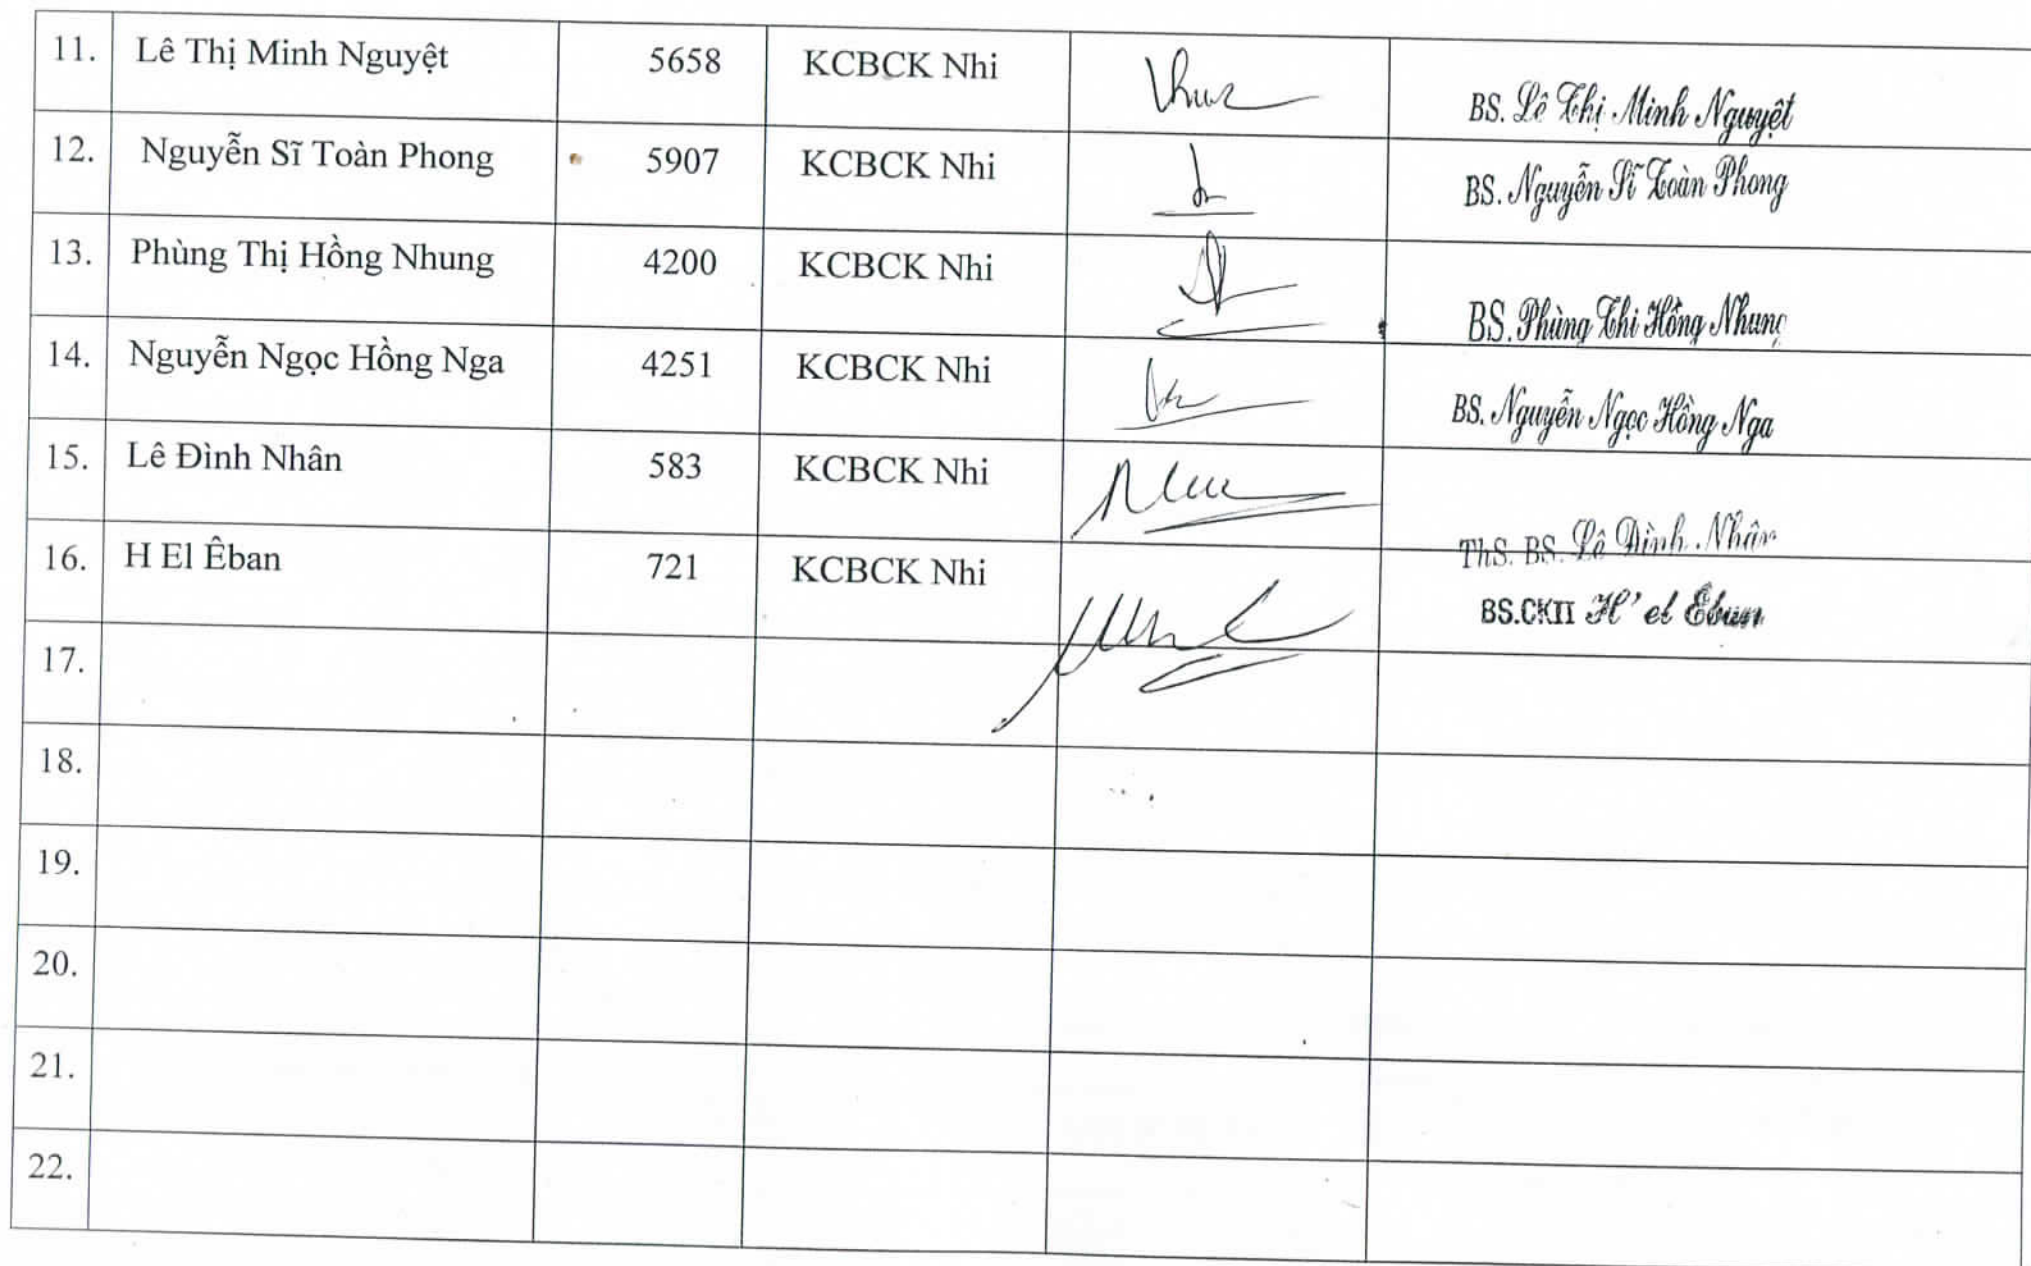 11. Lê Thị Minh Nguyệt 5658 KCBCK Nhi BS. Lê Thị Minh Nguyệt
12. Nguyễn Sĩ Toàn Phong 5907 KCBCK Nhi BS. Nguyễn Sĩ Toàn Phong
13. Phùng Thị Hồng Nhung 4200 KCBCK Nhi BS. Phùng Thị Hồng Nhung
14. Nguyễn Ngọc Hồng Nga 4251 KCBCK Nhi BS. Nguyễn Ngọc Hồng Nga
15. Lê Đình Nhân 583 KCBCK Nhi ThS. BS. Lê Đình Nhân
16. H El Êban 721 KCBCK Nhi BS.CKII H' el Êban
17.
18.
19.
20.
21.
22.